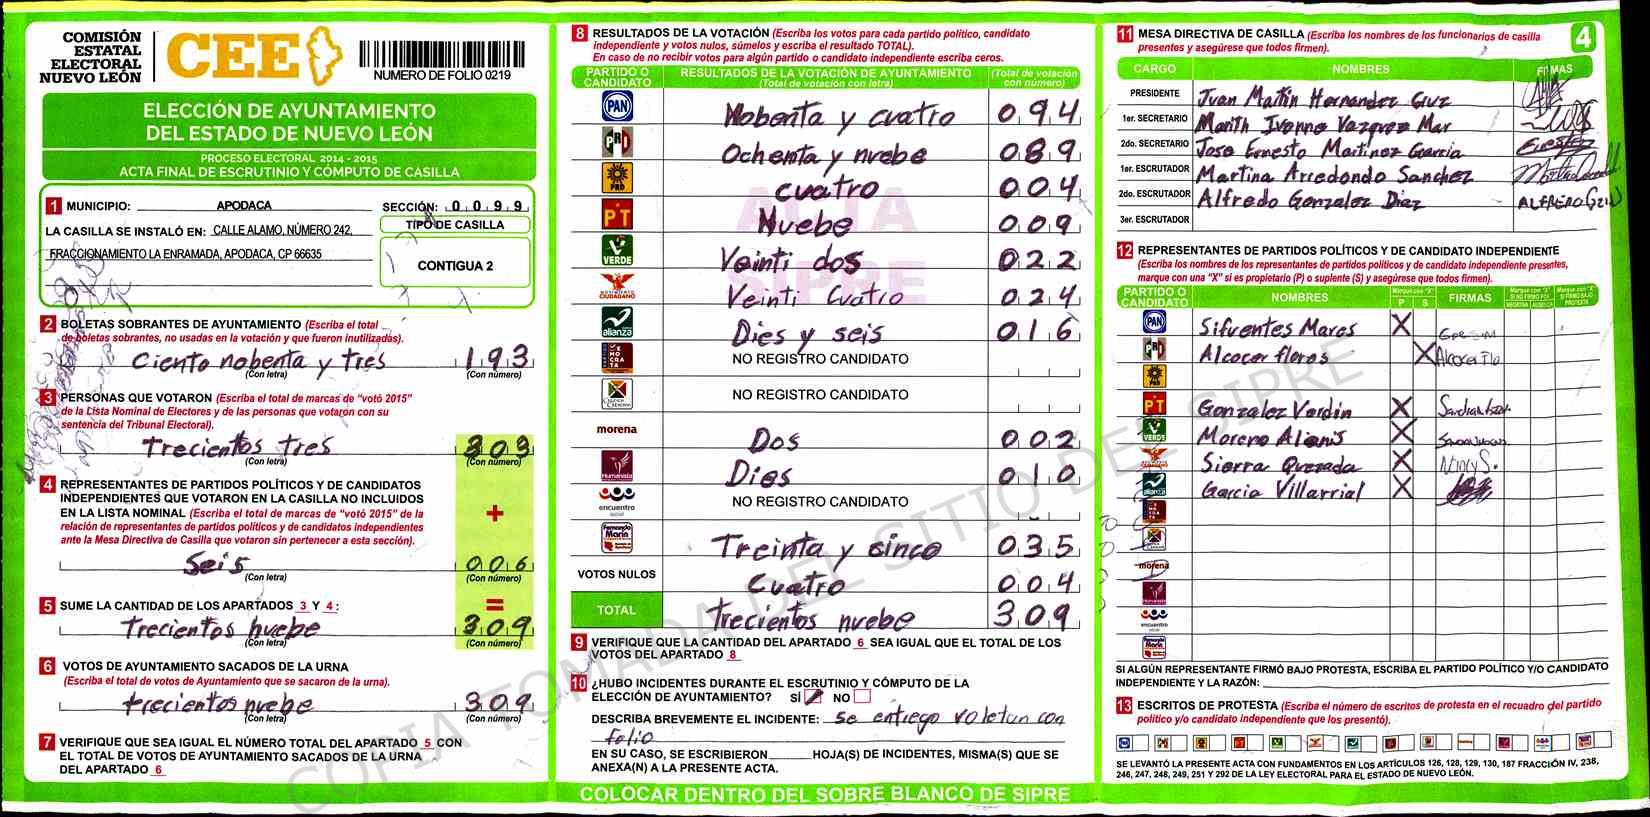 COMISIÓN
ESTATAL
ELECTORAL
NUEVO LEÓN
CEE
NUMERO DE FOLIO 0219
ELECCIÓN DE AYUNTAMIENTO
DEL ESTADO DE NUEVO LEÓN
PROCESO ELECTORAL 2014 - 2015
ACTA FINAL DE ESCRUTINIO Y CÓMPUTO DE CASILLA
1 MUNICIPIO: APODACA SECCIÓN: 0 0 9 9
LA CASILLA SE INSTALÓ EN: CALLE ALAMO, NÚMERO 242,
FRACCIONAMIENTO LA ENRAMADA, APODACA, CP 66635
TIPO DE CASILLA
CONTIGUA 2
2 BOLETAS SOBRANTES DE AYUNTAMIENTO (Escriba el total
de boletas sobrantes, no usadas en la votación y que fueron inutilizadas).
Ciento nobenta y tres 1 9 3
(Con letra) (Con número)
3 PERSONAS QUE VOTARON (Escriba el total de marcas de "votó 2015"
de la Lista Nominal de Electores y de las personas que votaron con su
sentencia del Tribunal Electoral).
Trecientos tres 3 0 3
(Con letra) (Con número)
4 REPRESENTANTES DE PARTIDOS POLÍTICOS Y DE CANDIDATOS
INDEPENDIENTES QUE VOTARON EN LA CASILLA NO INCLUIDOS
EN LA LISTA NOMINAL (Escriba el total de marcas de "votó 2015" de la
relación de representantes de partidos políticos y de candidatos independientes
ante la Mesa Directiva de Casilla que votaron sin pertenecer a esta sección).
+
Seis 0 0 6
(Con letra) (Con número)
5 SUME LA CANTIDAD DE LOS APARTADOS 3 Y 4 : =
Trecientos nuebe 3 0 9
(Con letra) (Con número)
6 VOTOS DE AYUNTAMIENTO SACADOS DE LA URNA
(Escriba el total de votos de Ayuntamiento que se sacaron de la urna).
trecientos nuebe 3 0 9
(Con letra) (Con número)
7 VERIFIQUE QUE SEA IGUAL EL NÚMERO TOTAL DEL APARTADO 5 CON
EL TOTAL DE VOTOS DE AYUNTAMIENTO SACADOS DE LA URNA
DEL APARTADO 6
8 RESULTADOS DE LA VOTACIÓN (Escriba los votos para cada partido político, candidato
independiente y votos nulos, súmelos y escriba el resultado TOTAL).
En caso de no recibir votos para algún partido o candidato independiente escriba ceros.
PARTIDO O CANDIDATO RESULTADOS DE LA VOTACIÓN DE AYUNTAMIENTO (Total de votación con letra) (Total de votación con número)
PAN Nobenta y cuatro 0 9 4
PRI Ochenta y nuebe 0 8 9
PRD cuatro 0 0 4
PT Nuebe 0 0 9
VERDE Veinti dos 0 2 2
MOVIMIENTO CIUDADANO Veinti Cuatro 0 2 4
alianza Dies y seis 0 1 6
NO REGISTRO CANDIDATO
NO REGISTRO CANDIDATO
morena Dos 0 0 2
Humanista Dies 0 1 0
encuentro social NO REGISTRO CANDIDATO
Fernando Marín Treinta y cinco 0 3 5
VOTOS NULOS Cuatro 0 0 4
TOTAL Trecientos nuebe 3 0 9
ACTA
SIPRE
9 VERIFIQUE QUE LA CANTIDAD DEL APARTADO 6 SEA IGUAL QUE EL TOTAL DE LOS
VOTOS DEL APARTADO 8
10 ¿HUBO INCIDENTES DURANTE EL ESCRUTINIO Y CÓMPUTO DE LA
ELECCIÓN DE AYUNTAMIENTO? SÍ NO
DESCRIBA BREVEMENTE EL INCIDENTE: Se entrego voletan con
folio
EN SU CASO, SE ESCRIBIERON HOJA(S) DE INCIDENTES, MISMA(S) QUE SE
ANEXA(N) A LA PRESENTE ACTA.
COLOCAR DENTRO DEL SOBRE BLANCO DE SIPRE
11 MESA DIRECTIVA DE CASILLA (Escriba los nombres de los funcionarios de casilla
presentes y asegúrese que todos firmen).
4
CARGO NOMBRES FIRMAS
PRESIDENTE Juan Martin Hernandez Cruz
1er. SECRETARIO Marith Ivonne Vazquez Mar
2do. SECRETARIO Jose Ernesto Martinez Garcia
1er. ESCRUTADOR Martina Arredondo Sanchez
2do. ESCRUTADOR Alfredo Gonzalez Diaz
3er. ESCRUTADOR
12 REPRESENTANTES DE PARTIDOS POLÍTICOS Y DE CANDIDATO INDEPENDIENTE
(Escriba los nombres de los representantes de partidos políticos y de candidato independiente presentes,
marque con una "X" si es propietario (P) o suplente (S) y asegúrese que todos firmen).
PARTIDO O CANDIDATO NOMBRES P S FIRMAS
PAN Sifuentes Mares X
PRI Alcocer flores X
PRD
PT Gonzalez Verdin X
VERDE Moreno Alanis X
Sierra Quezada X Nancy S.
alianza Garcia Villarrial X
morena
encuentro social
SI ALGÚN REPRESENTANTE FIRMÓ BAJO PROTESTA, ESCRIBA EL PARTIDO POLÍTICO Y/O CANDIDATO
INDEPENDIENTE Y LA RAZÓN:
13 ESCRITOS DE PROTESTA (Escriba el número de escritos de protesta en el recuadro del partido
político y/o candidato independiente que los presentó).
SE LEVANTÓ LA PRESENTE ACTA CON FUNDAMENTOS EN LOS ARTÍCULOS 126, 128, 129, 130, 187 FRACCIÓN IV, 238,
246, 247, 248, 249, 251 Y 292 DE LA LEY ELECTORAL PARA EL ESTADO DE NUEVO LEÓN.
COPIA TOMADA DEL SITIO DEL SIPRE